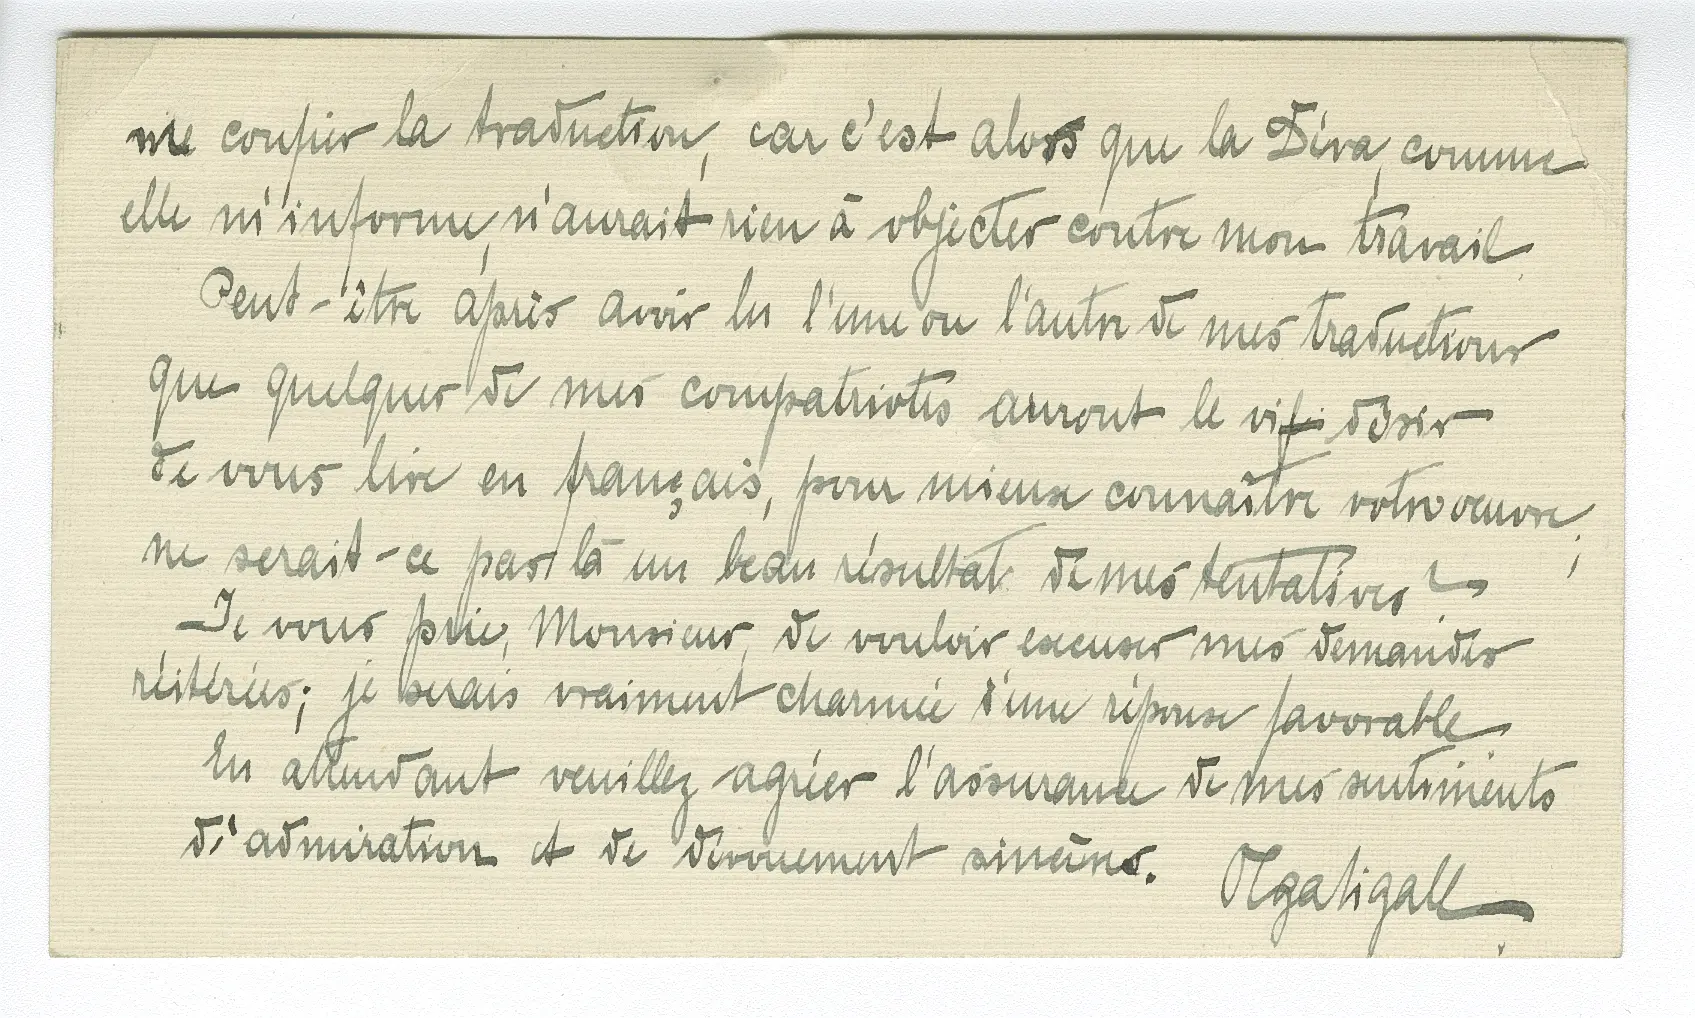 me confier la traduction, car c'est alors que la Diva, comme
elle m'informe, n'aurait rien à objecter contre mon travail
Peut-être après avoir lu l'une ou l'autre de mes traductions
que quelques de mes compatriotes auront le vif désir
de vous lire en français, pour mieux connaître votre oeuvre;
ne serait-ce pas là un beau résultat de mes tentatives?
Je vous prie, Monsieur, de vouloir excuser mes demandes
réitérées; je serais vraiment charmée d'une réponse favorable
En attendant veuillez agréer l'assurance de mes sentiments
d'admiration et de dévouement sincères.
Olga Sigall